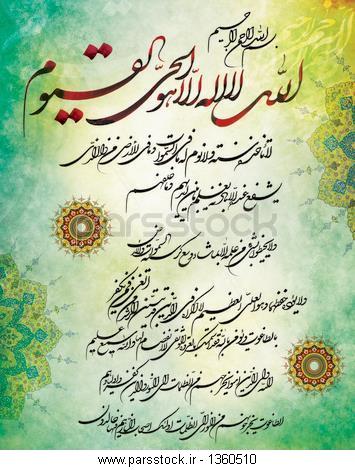 بسم الله الرحمن الرحیم
الله لا اله الا هو الحی القیوم
لا تاخذه سنة و لا نوم له ما فی السموات و ما فی الارض من ذا الذی
یشفع عنده الا باذنه یعلم ما بین ایدیهم و ما خلفهم
و لا یحیطون بشیء من علمه الا بما شاء وسع کرسیه السموات والارض
و لا یوده حفظهما و هو العلی العظیم لا اکراه فی الدین قد تبین الرشد من الغی فمن یکفر
بالطاغوت و یومن بالله فقد استمسک بالعروة الوثقی لا انفصام لها والله سمیع علیم
الله ولی الذین آمنوا یخرجهم من الظلمات الی النور والذین کفروا اولیاوهم
الطاغوت یخرجونهم من النور الی الظلمات اولئک اصحاب النار هم فیها خالدون
www.parsstock.ir - 1360510